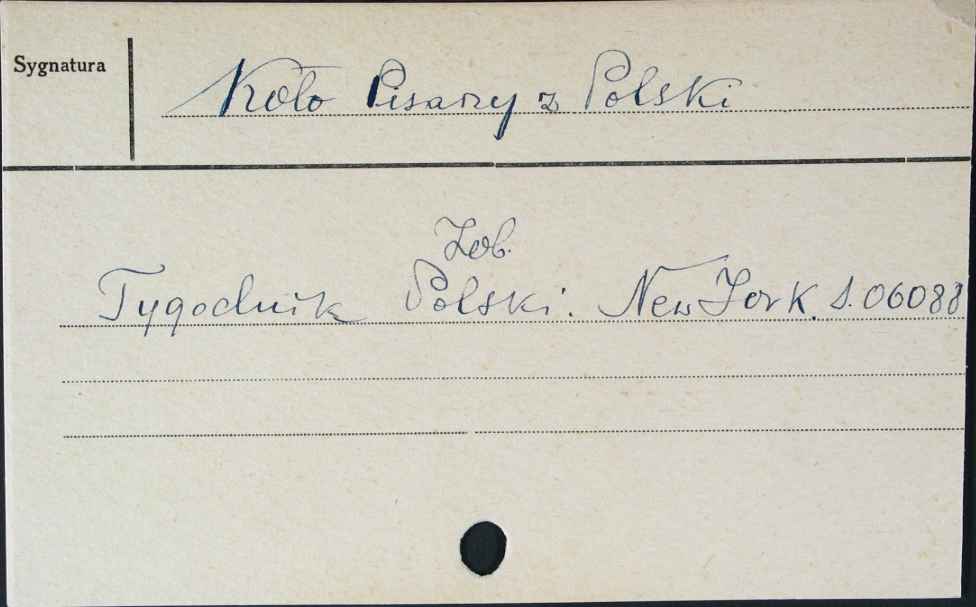 Sygnatura
Koło Pisarzy z Polski
Zob.
Tygodnik Polski. New Jork. S.06088